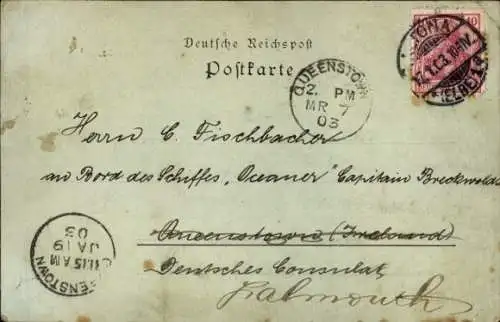 Deutsche Reichspost
Postkarte
10
(ELBE)
QUEENSTOWN
2. PM
MR 7
03
Herrn C. Fischbacher
an Bord des Schiffes "Oceaner" Capitain
Queenstown (Ireland)
Deutsches Consulat
Falmouth
QUEENSTOWN
11.15 AM
JA 19
03